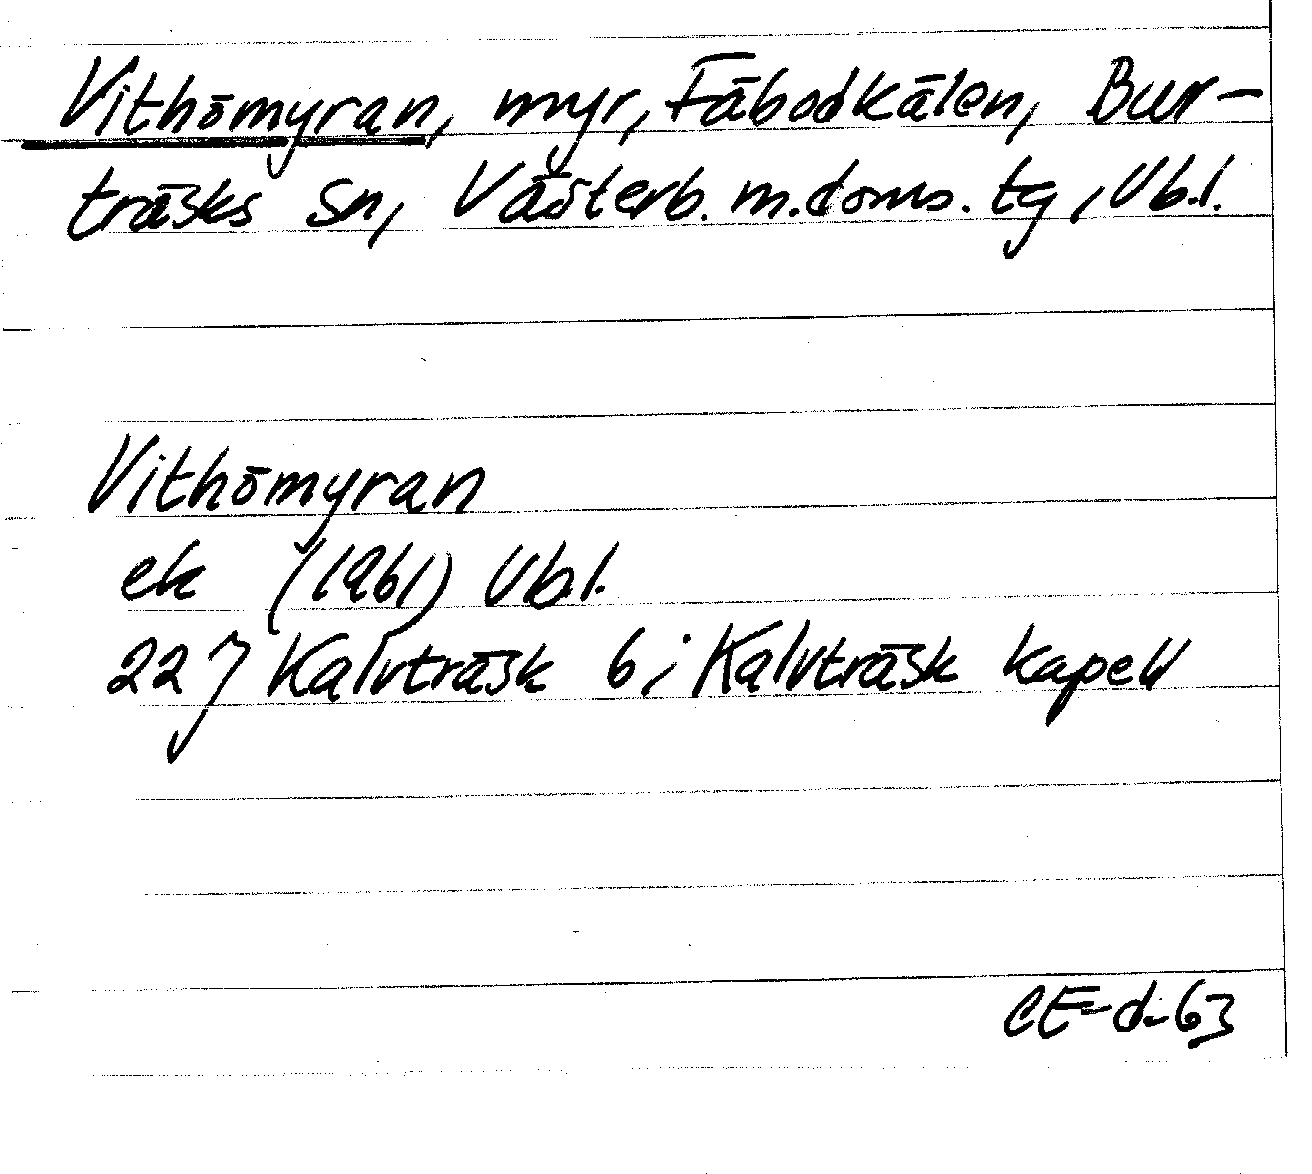 Vithömyran, myr, Fäbodkälen, Bur-
träsks sn, Västerb. m. doms. tg, Vb.l.
Vithömyran
ek (1961) Vb.l.
22 J Kalvträsk 6; Kalvträsk kapell
CE-d-63